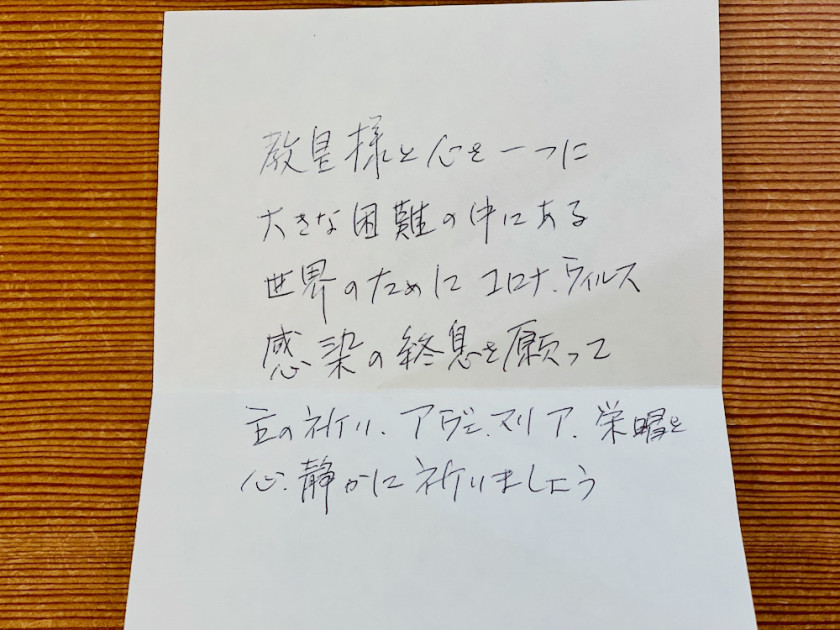 教皇様と心を一つに
大きな困難の中にある
世界のために コロナ.ウィルス
感染の終息を願って
主の祈り.アヴェ.マリア.栄唱を
心.静かに祈りましょう